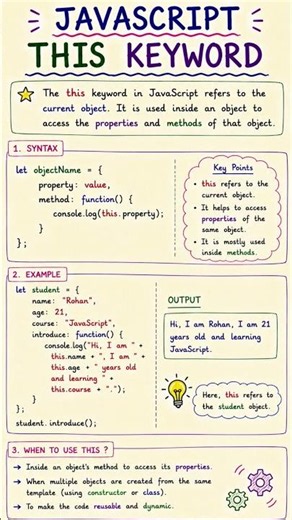 JAVASCRIPT
THIS KEYWORD
The this keyword in JavaScript refers to the
current object. It is used inside an object to
access the properties and methods of that object.
1. SYNTAX
let objectName = {
property: value,
method: function() {
console.log(this.property);
}
};
Key Points
• this refers to the
current object.
• It helps to access
properties of the
same object.
• It is mostly used
inside methods.
2. EXAMPLE
let student = {
name: "Rohan",
age: 21,
course: "JavaScript",
introduce: function() {
console.log("Hi, I am " +
this.name + ", I am " +
this.age + " years old
and learning " +
this.course + ".");
}
};
student.introduce();
OUTPUT
Hi, I am Rohan, I am 21
years old and learning
JavaScript.
Here, this refers to
the student object.
3. WHEN TO USE THIS ?
→ Inside an object's method to access its properties.
→ When multiple objects are created from the same
template (using constructor or class).
→ To make the code reusable and dynamic.